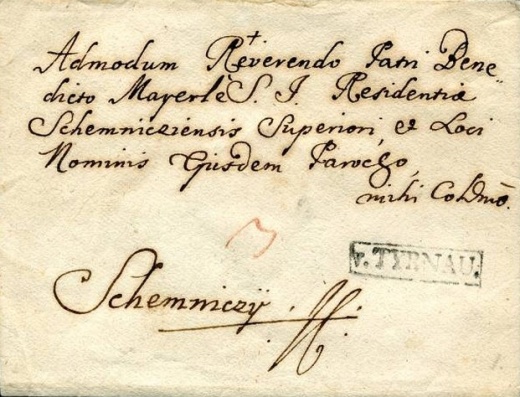 Admodum Reverendo Patri Bene„
dicto Mayerle S. J. Residentiæ
Schemnicziensis Superiori, et Loci
Nominis Ejusdem Parocho,
mihi Coldmō.
3
v. TYRNAU.
Schemniczÿ